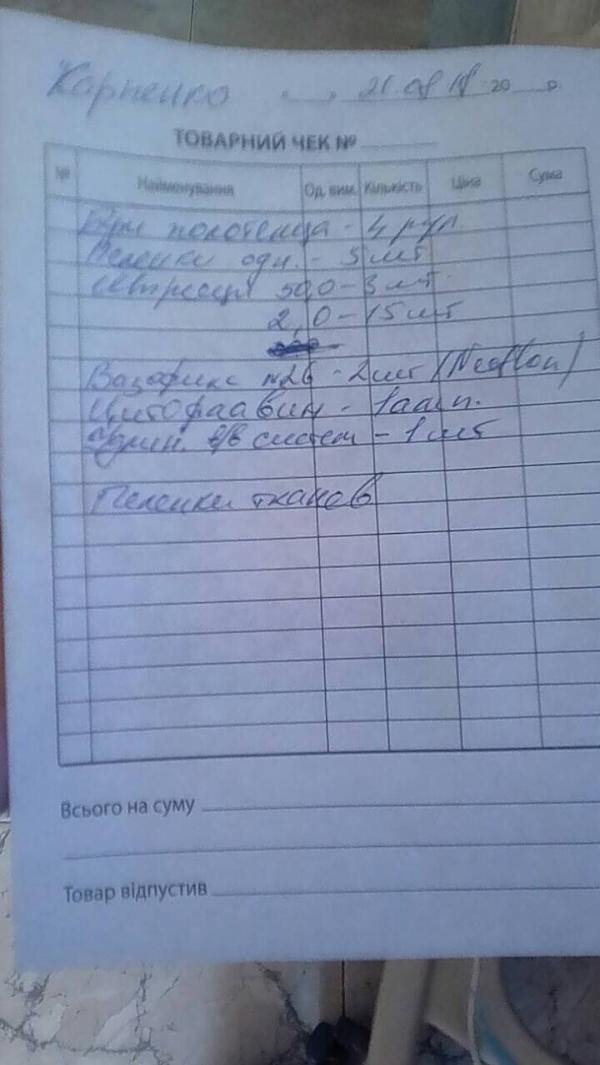 Карпенко 21.08 18 20 р.
ТОВАРНИЙ ЧЕК №
№ Найменування Од. вим. Кількість Ціна Сума
полотенца - 4 рул.
Пеленки одн. - 5 шт
50,0 - 3 шт.
2,0 - 15 шт
Вазофикс №26 - 2 шт (Neoflon)
Цитофлавин - 1 амп.
в/в систем - 1 шт
Пеленки тканев
Всього на суму
Товар відпустив